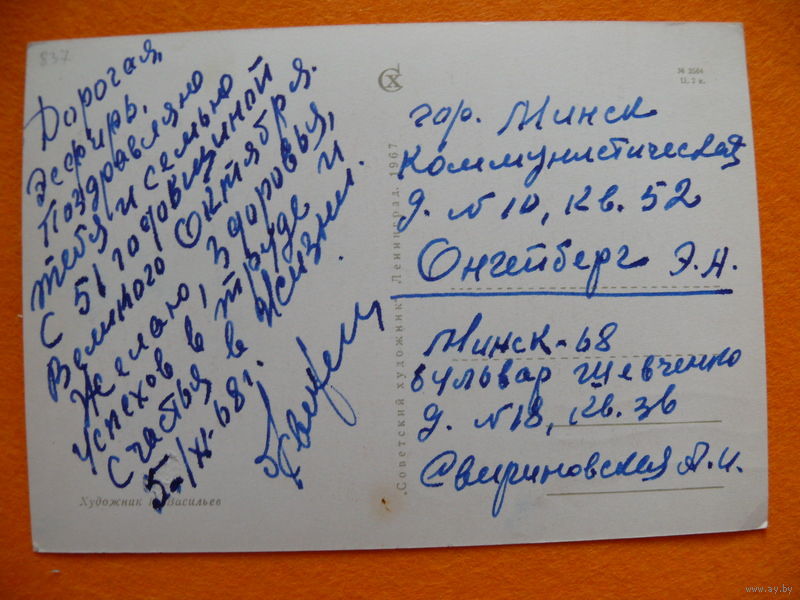 837
Дорогая
Эсфирь,
Поздравляю
тебя и семью
с 51 годовщиной
Великого Октября.
Желаю, здоровья,
успехов в труде и
счастья в жизни.
5/XI-68г.
Художник Васильев
"Советский художник" Ленинград. 1967
СХ
М 3504
Ц. 2 к.
гор. Минск
Коммунистическая
д. № 10, кв. 52
Онгейберг Э.Н.
Минск-68
бульвар Шевченко
д. № 18, кв. 36
Свириновская А.И.
www.ay.by